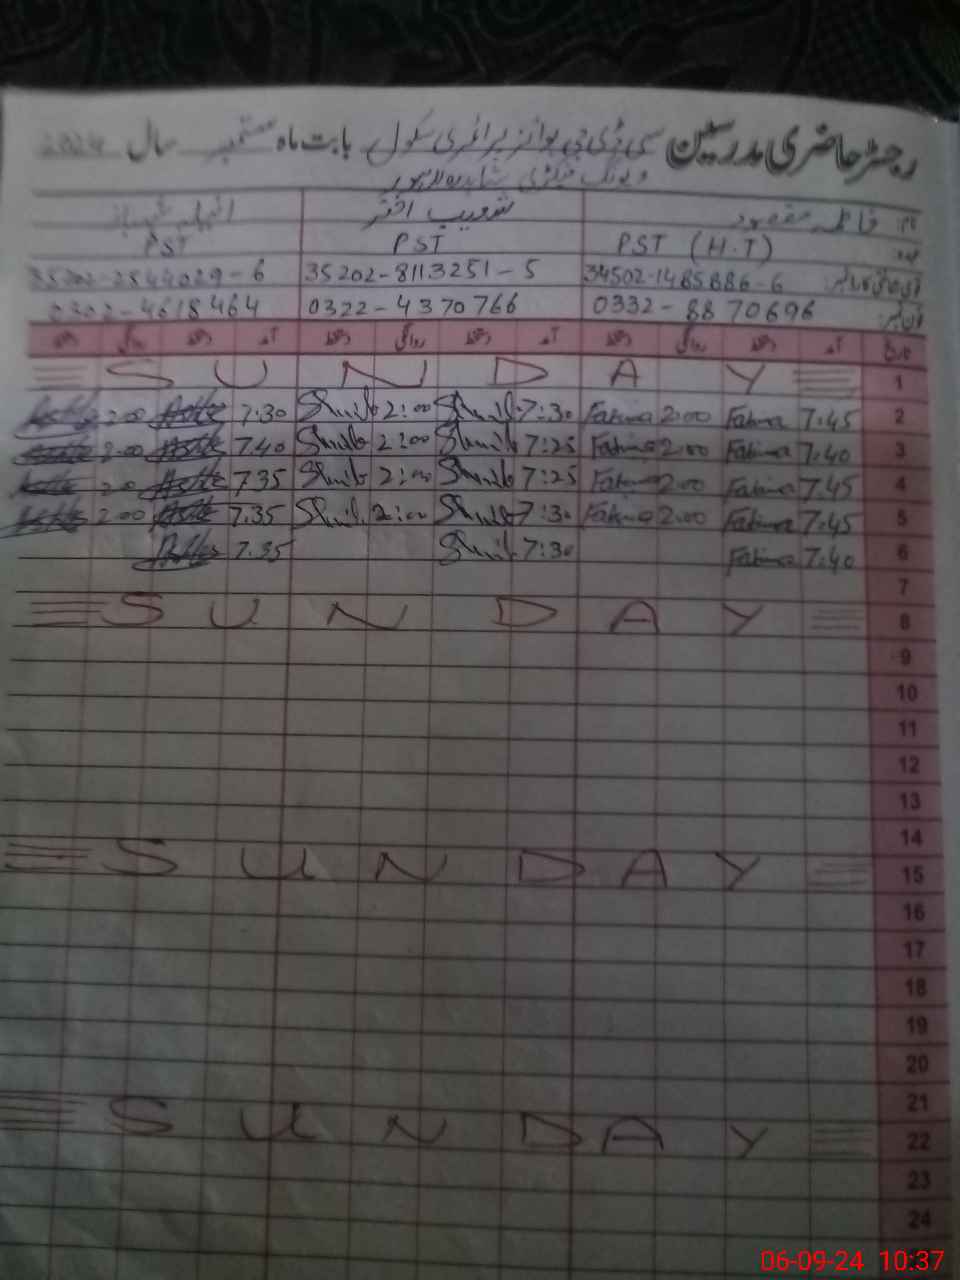 رجسٹر حاضری مدرسین سی ڈی جی بوائز پرائمری سکول بابت ماہ ستمبر سال 2024
شاہدرہ لاہور
نام: فاطمہ مقصود شعیب اختر
عہدہ PST (H.T) PST PST
34502-1485886-6 35202-8113251-5 35202-2844029-6
فون نمبر: 0332-8870696 0322-4370766 0302-4618464
تاریخ آمد دستخط روانگی دستخط آمد دستخط روانگی دستخط آمد دستخط روانگی دستخط
1 SUNDAY
2 7:45 Fatima 2:00 Fatima 7:30 Shoaib 2:00 Shoaib 7:30 2:00
3 7:40 Fatima 2:00 Fatima 7:25 Shoaib 2:00 Shoaib 7.40 2.00
4 7.45 Fatima 2:00 Fatima 7:25 Shoaib 2:00 Shoaib 7.35 2.0
5 7:45 Fatima 2:00 Fatima 7:30 Shoaib 2:00 Shoaib 7.35 2.00
6 7:40 Fatima 7:30 Shoaib 7.35
7
8 SUNDAY
9
10
11
12
13
14
15 SUNDAY
16
17
18
19
20
21
22 SUNDAY
23
24
06-09-24 10:37